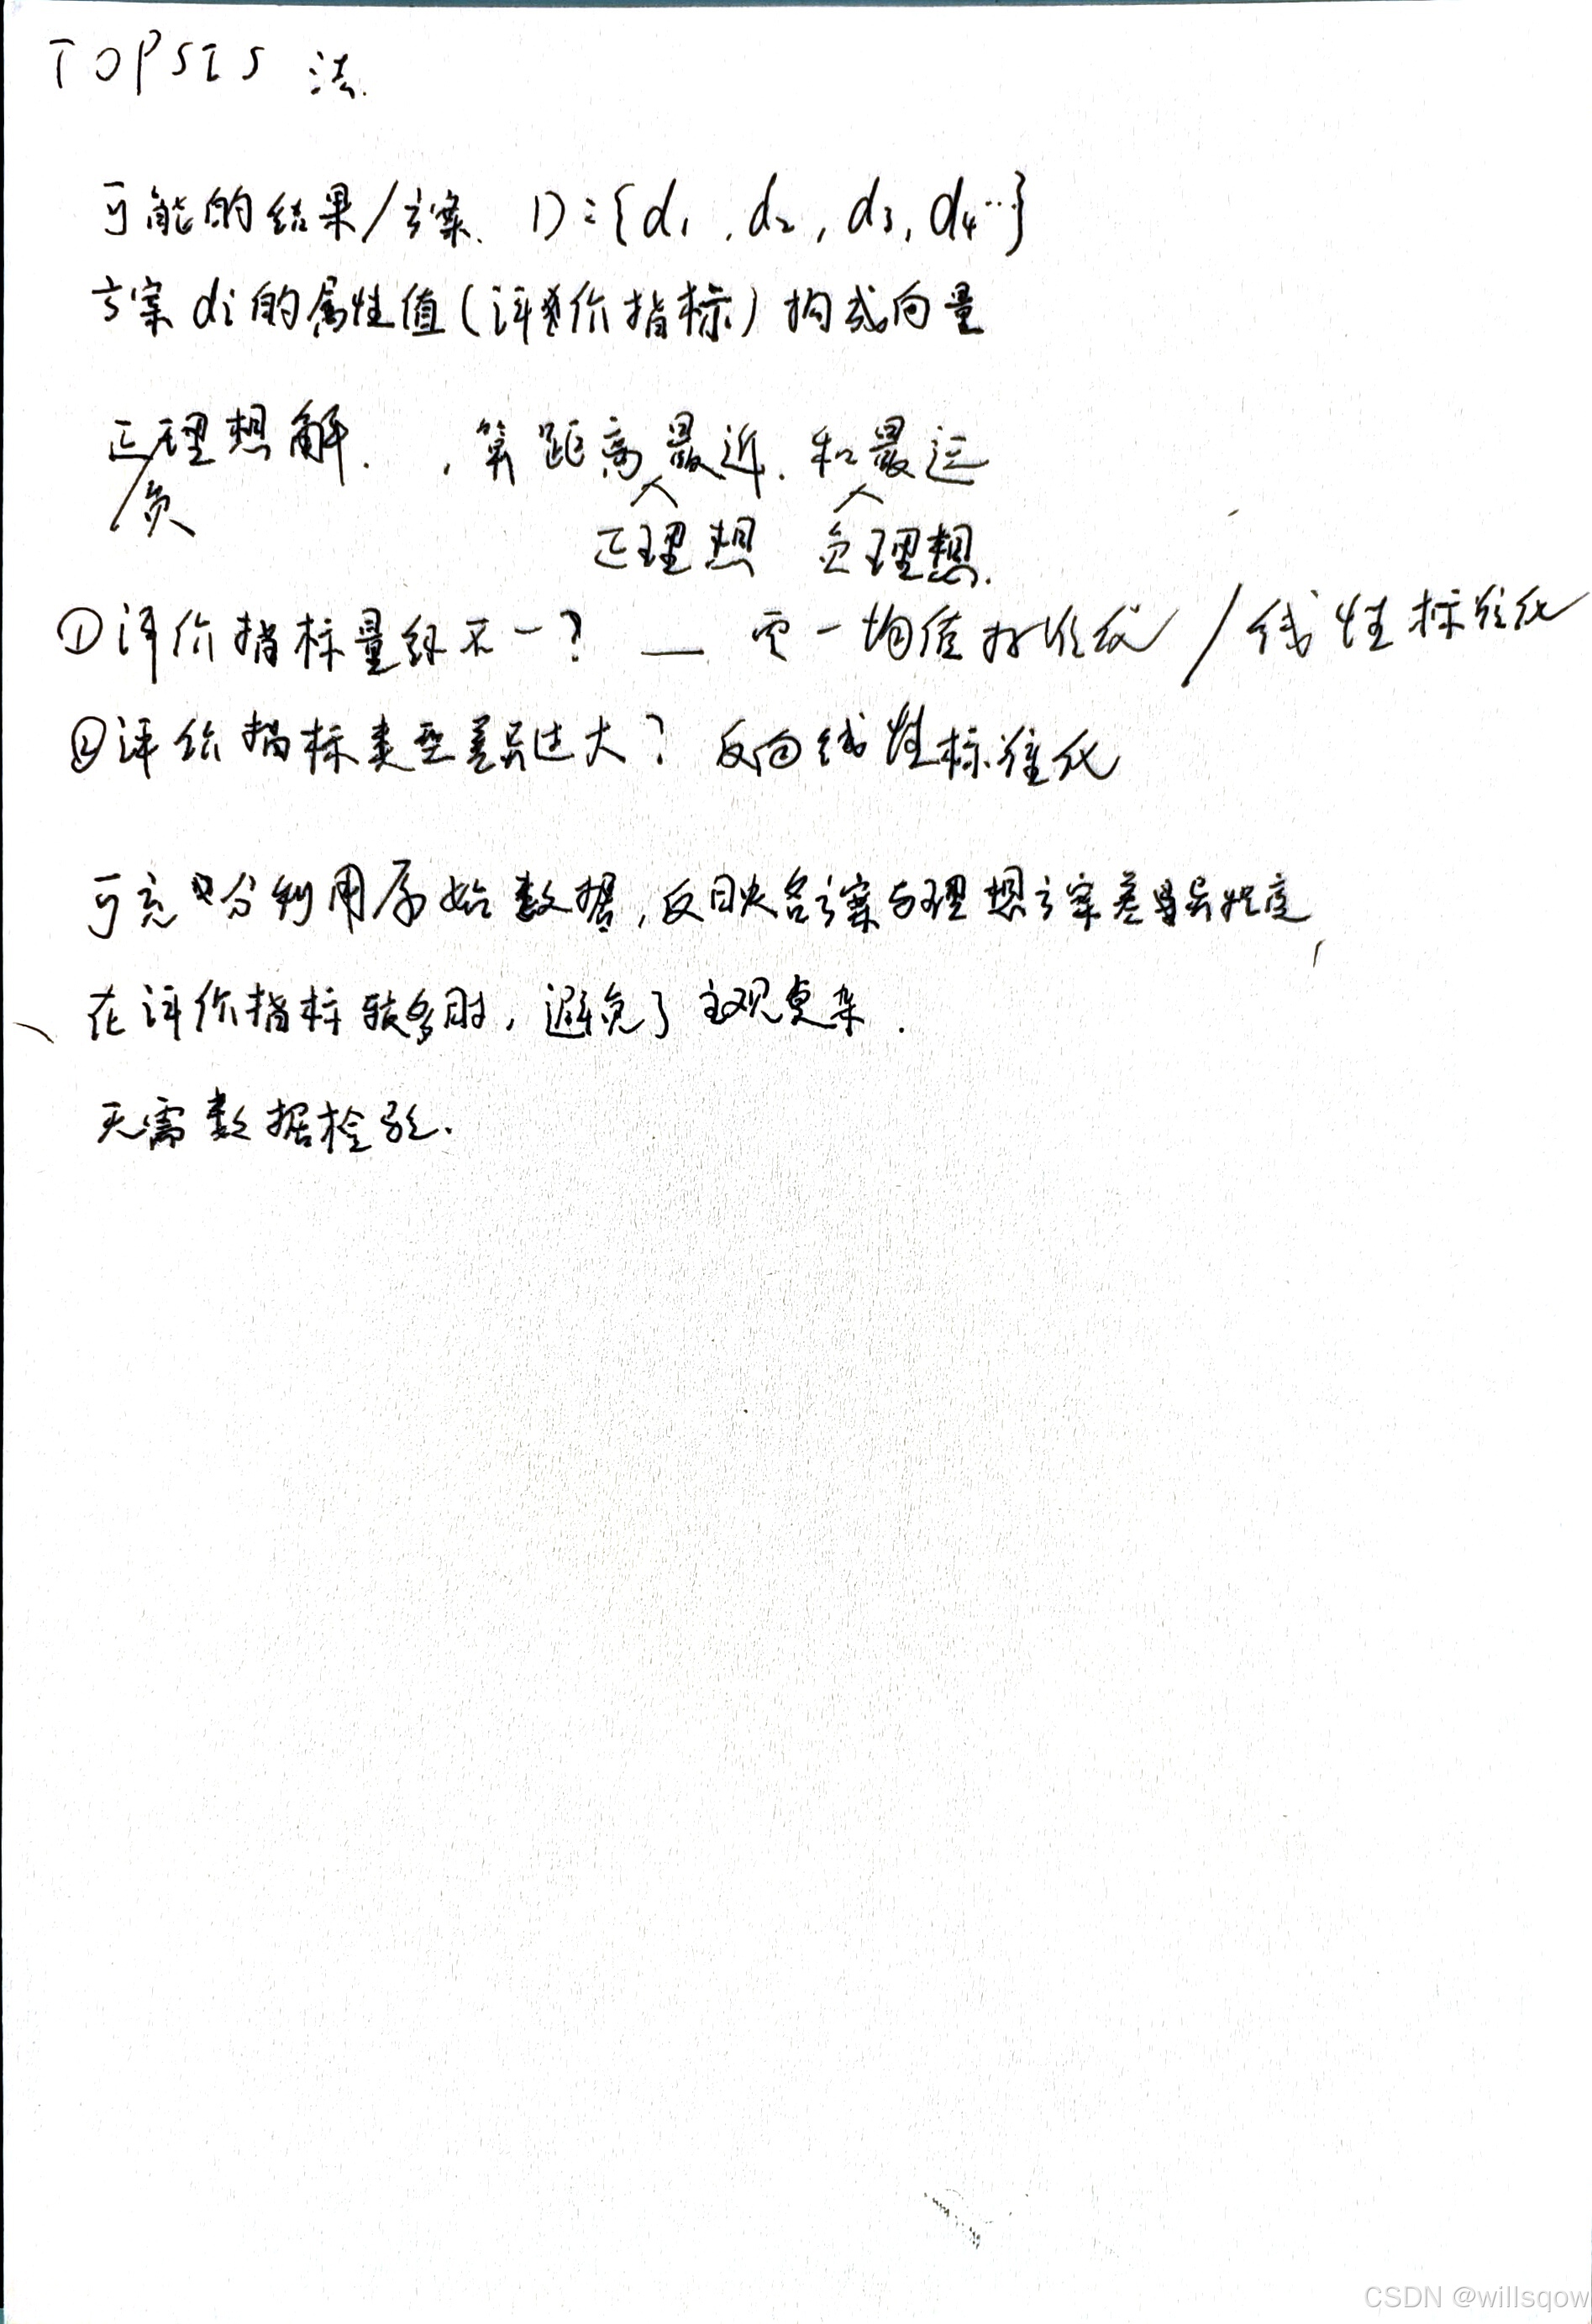 TOPSIS 法.
可能的结果/方案. D:{d1,d2,d3,d4…}
方案di的属性值(评价指标)构成向量
正理想解. ,算距离最近.和最远
/负
正理想 负理想.
①评价指标量纲不一? — 零一均值标准化/线性标准化
②评价指标类型差异过大? 反向线性标准化
可充分利用原始数据,反映各方案与理想方案差异程度,
在评价指标较多时,避免了主观复杂.
无需数据检验.
CSDN @willsqow